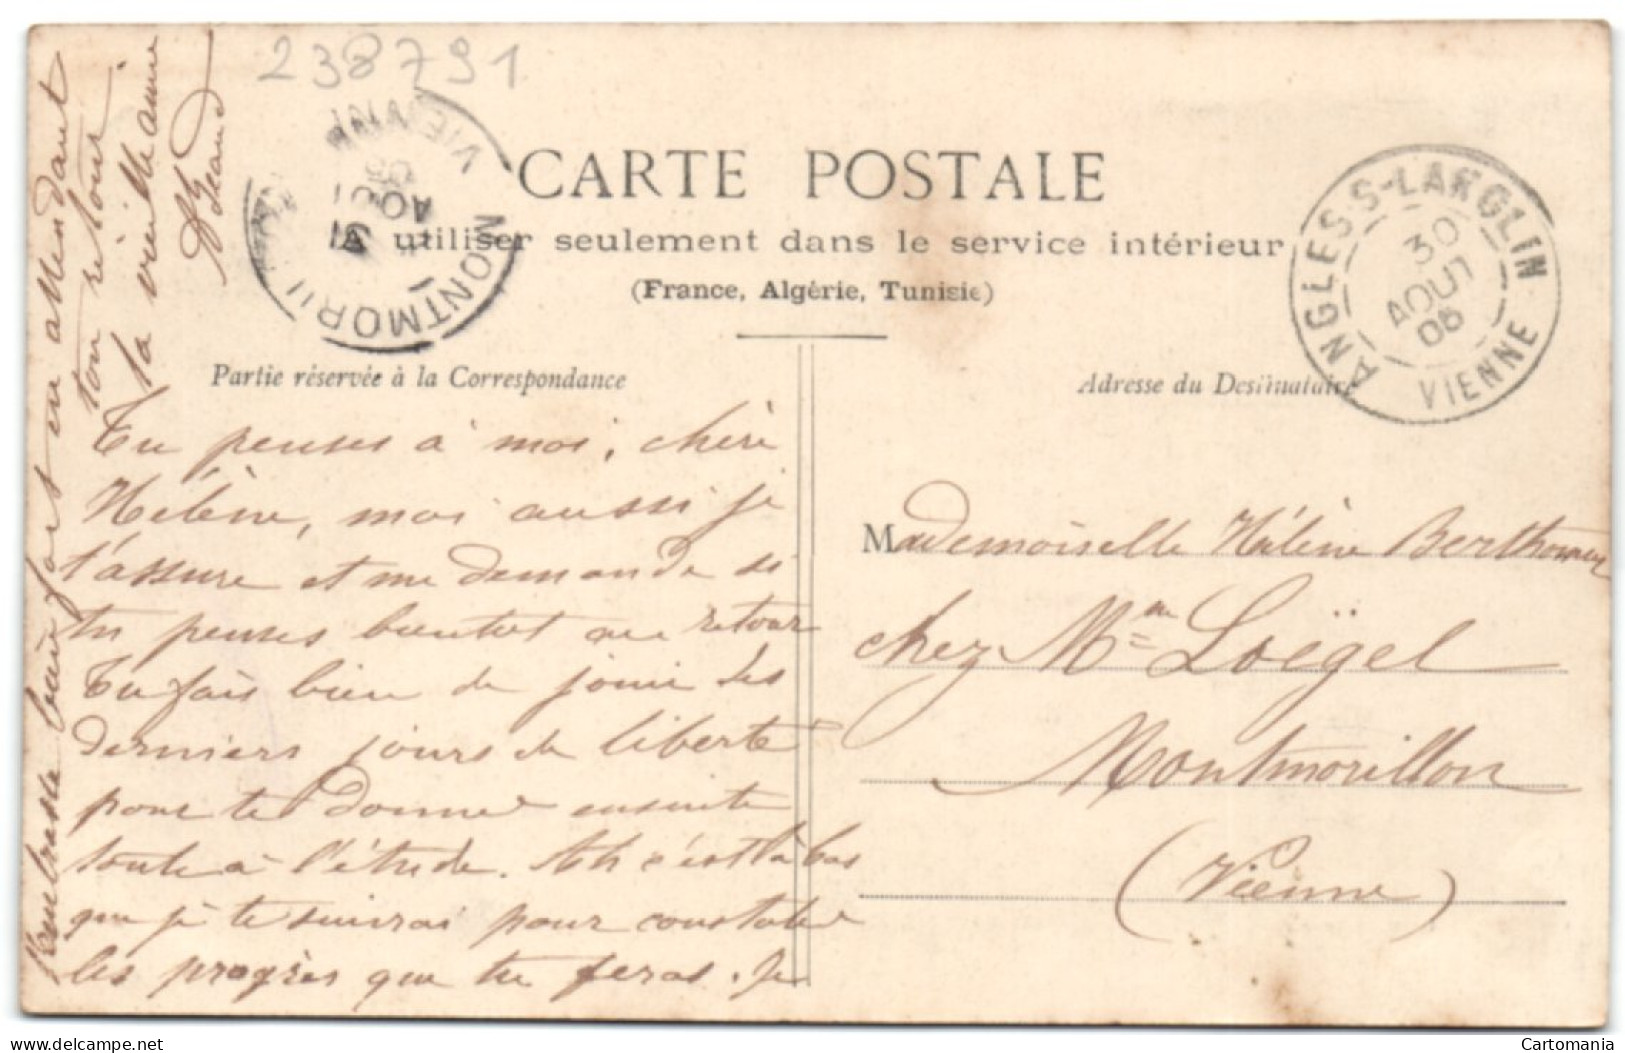 238791
CARTE POSTALE
A utiliser seulement dans le service intérieur
(France, Algérie, Tunisie)
Partie réservée à la Correspondance
Adresse du Destinataire
MONTMORILL
VIENN
31
AO
ANGLES-S-L'ANGLIN
30
AOUT
06
VIENNE
Tu penses à moi, chère
Hélène, moi aussi je
t'assure et me demande si
tu penses bientôt au retour
Tu fais bien de jouir des
derniers jours de liberté
pour te donner ensuite
toute à l'étude. Ah c'est là bas
que je te suivrai pour constater
les progrès que tu feras. Je
t'embrasse bien fort en attendant
ton retour
ta vieille amie
Mademoiselle Hélène Berthomier
chez Mme Loëgel
Montmorillon
(Vienne)
www.delcampe.net
Cartomania